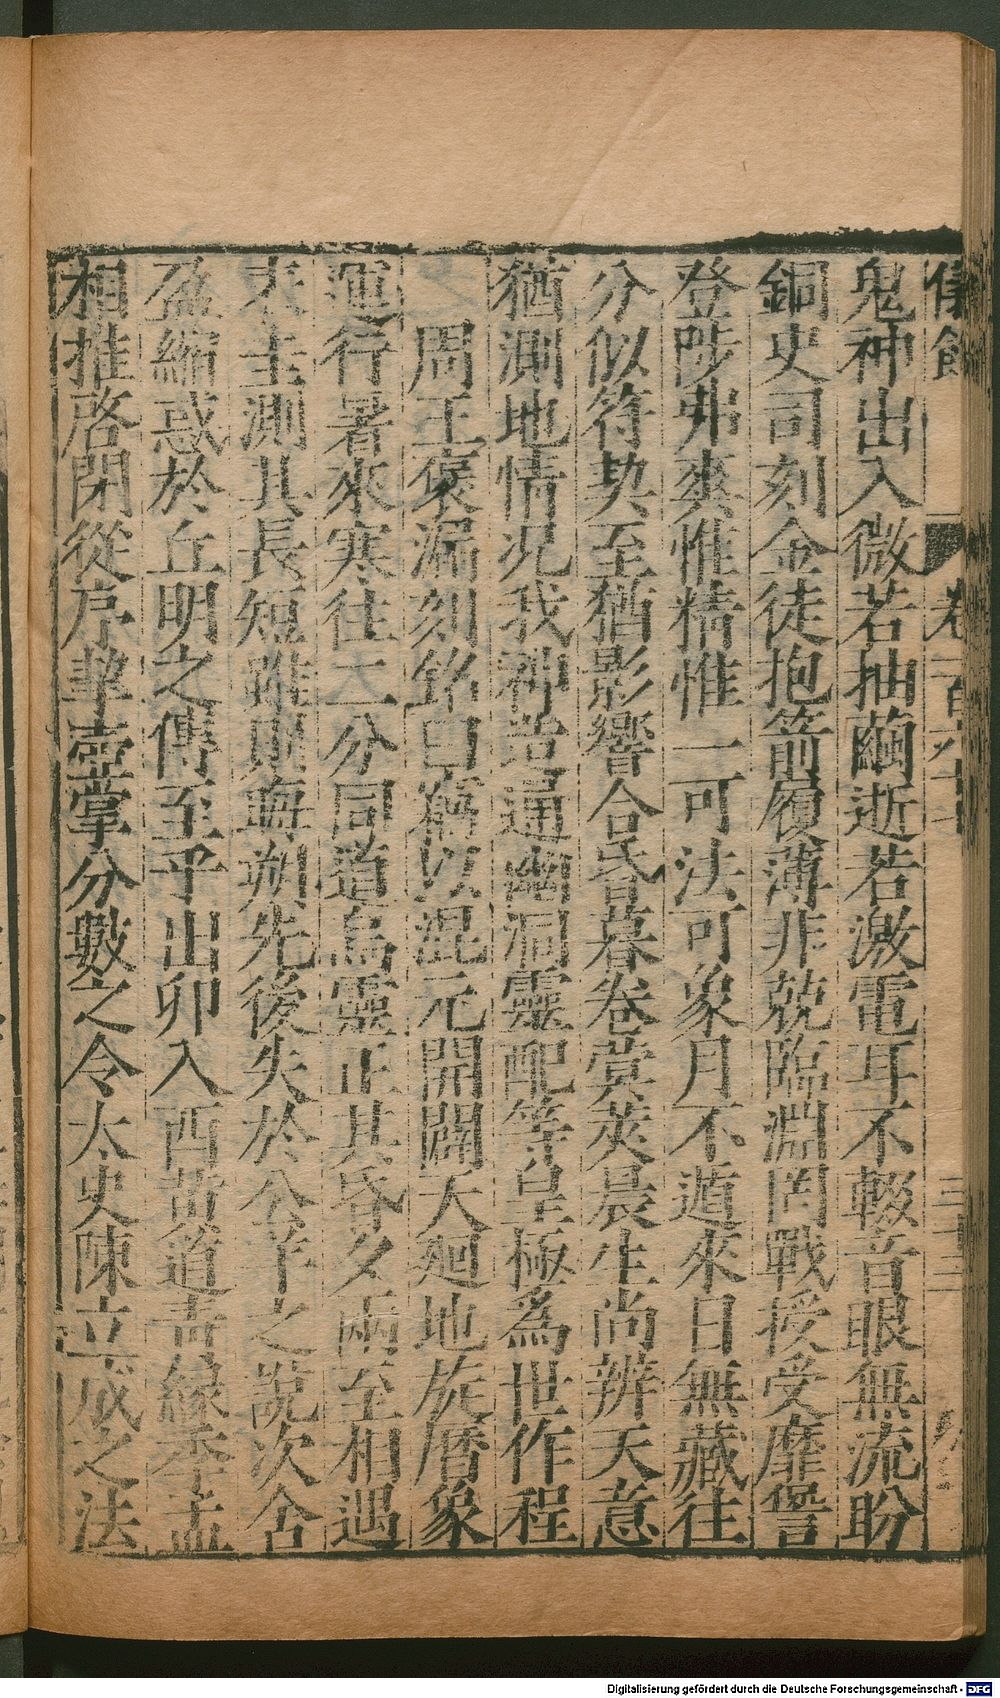 鬼神出入微若抽繭逝若激電耳不輟音眼無流盼
銅史司刻金徒抱箭履薄非兢臨淵罔戰授受靡諐
登陟弗爽惟精惟一可法可象月不遁來日無藏往
分似符契至猶影響合昏暮卷蓂莢晨生尚辨天意
猶測地情况我神造通幽洞靈配等皇極爲世作程
周王褒漏刻銘曰竊以混元開闢天廻地旋曆象
運行暑來寒往二分同道烏靈正其昏夕兩至相遇
表圭測其長短雖則晦朔先後失於公羊之說次舍
盈縮惑於丘明之傳至乎出卯入酉黄道青緣季孟
相推啓閉從序挈壺掌分數之令太史陳立成之法
Digitalisierung gefördert durch die Deutsche Forschungsgemeinschaft - DFG